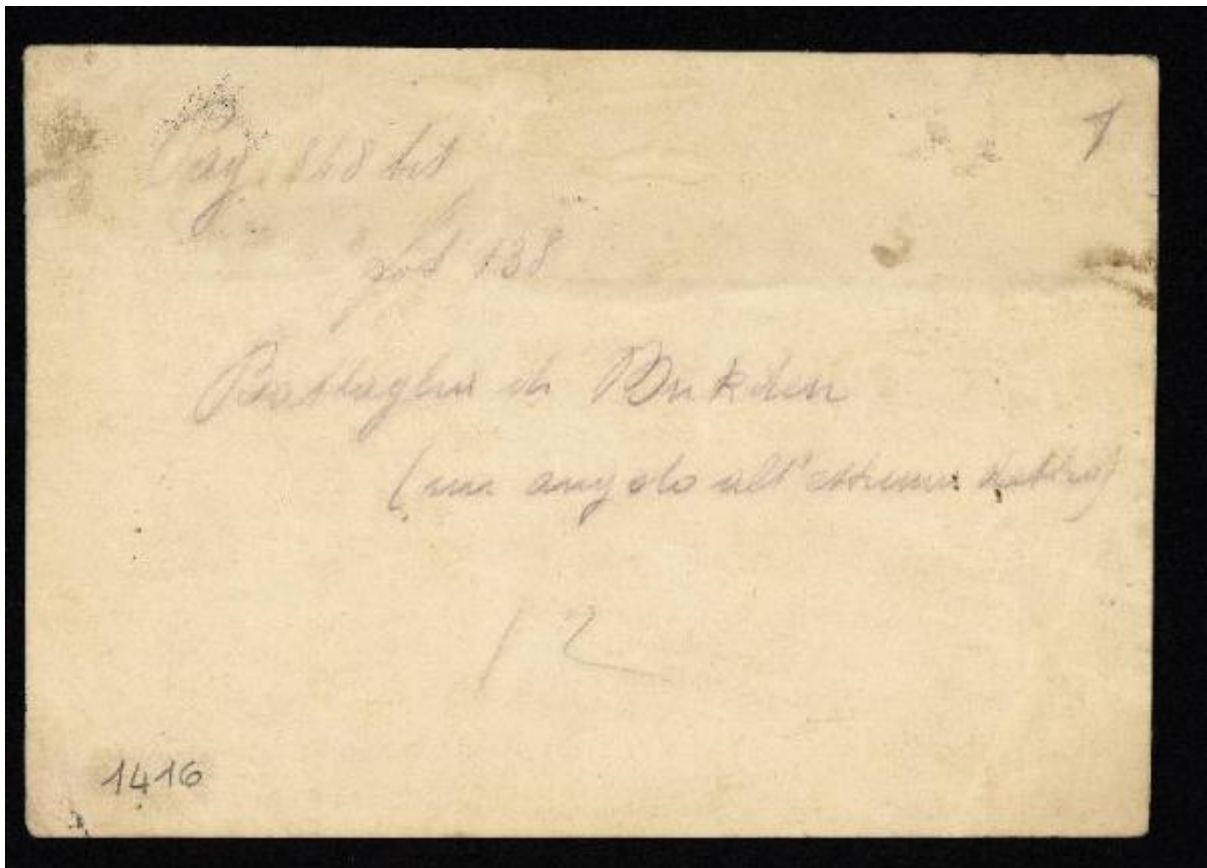 1
Pag. 848 bis
fot 138
Battaglia di Mukden
(un angolo all'estrema destra)
12
1416